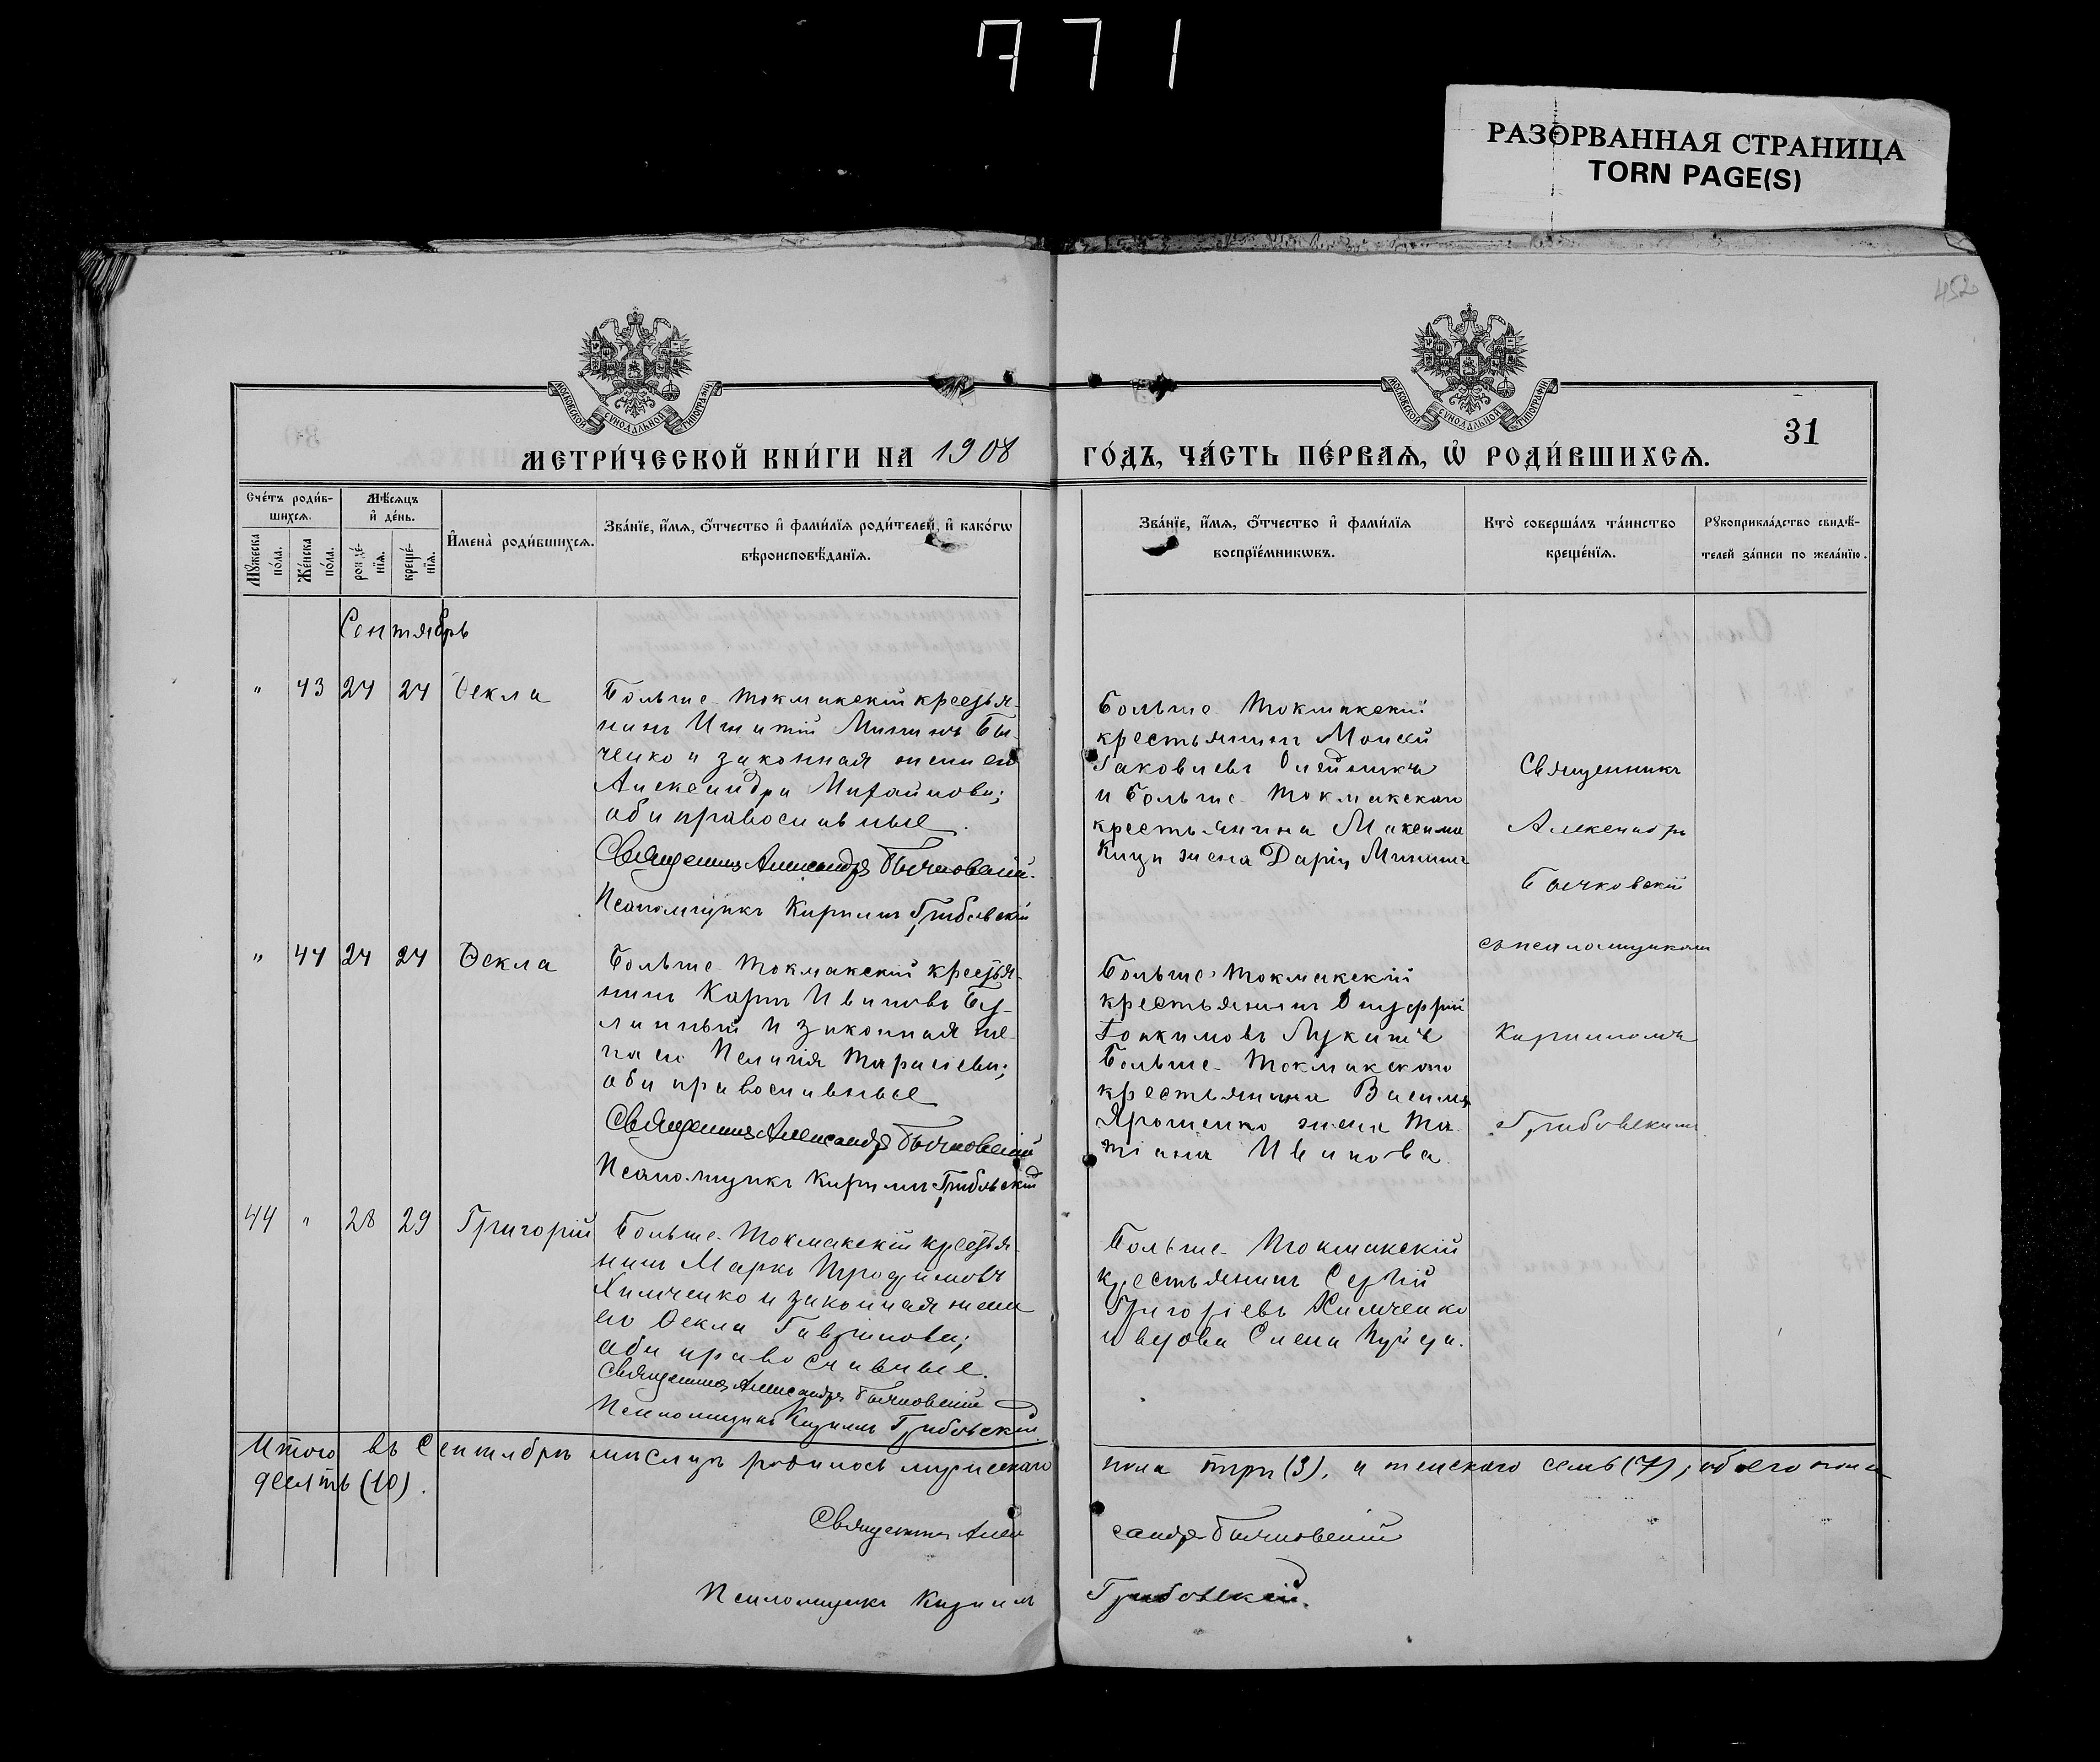 771
РАЗОРВАННАЯ СТРАНИЦА
TORN PAGE(S)
452
31
МЕТРИ́ЧЕСКОЙ КНИ́ГИ НА 1908 ГО́ДЪ, ЧА́СТЬ ПЕ́РВАѦ, Ѡ҆ РОДИ́ВШИХСѦ.
Сче́тъ роди́вшихсѧ.
Мꙋ́жеска по́ла.
Же́нска по́ла.
Мѣ́сѧцъ и҆ де́нь.
рожде́нїѧ.
креще́нїѧ.
И҆мена̀ роди́вшихсѧ.
Зва́нїе, и҆́мѧ, ѻ҆́тчество и҆ фами́лїѧ роди́телей, и҆ како́гѡ
вѣроисповѣ́данїѧ.
Зва́нїе, и҆́мѧ, ѻ҆́тчество и҆ фами́лїѧ
воспрїе́мникѡвъ.
Кто̀ соверша́лъ та́инство
креще́нїѧ.
Рꙋкоприкла́дство свидѣ́-
телей за́писи по жела́нїю.
Сентябрь
" 43 24 24 Ѳекла
Больше-Токмакскій крестья-
нинъ Игнатій Мининъ Бы-
ченко и законная жена его
Александра Михайлова;
оба православные.
Священникъ Александръ Бычковскій.
Псаломщикъ Кириллъ Грибовскій
Больше-Токмакскій
крестьянинъ Моисей
Іаковлевъ Олейникъ
и Больше-Токмакскаго
крестьянина Максима
жена Дарія Минина
Священникъ
Александръ
Бычковскій
съ псаломщикомъ
Кирилломъ
Грибовскимъ
" 44 24 24 Ѳекла
Больше-Токмакскій крестья-
нинъ Карпъ Ивановъ Бу-
линный и законная же-
на его Пелагія Тарасіева;
оба православные
Священникъ Александръ Бычковскій
Псаломщикъ Кириллъ Грибовскій
Больше-Токмакскій
крестьянинъ Онуфрій
Іоакимовъ Лукаш
Больше-Токмакскаго
крестьянина Василія
Ярошенко жена Та-
тіана Иванова.
44 " 28 29 Григорій
Больше-Токмакскій крестья-
нинъ Маркъ Трофимовъ
Химченко и законная жена
его Ѳекла Гавріилова;
оба православные.
Священникъ Александръ Бычковскій
Псаломщикъ Кириллъ Грибовскій.
Больше-Токмакскій
крестьянинъ Сергій
Григоріевъ Химченко
и вдова Елена
Итого въ Сентябрѣ мѣсяцѣ родилось мужескаго пола три (3), и женскаго семь (7), обоего пола
десять (10).
Священникъ Александръ Бычковскій
Псаломщикъ Кириллъ Грибовскій.